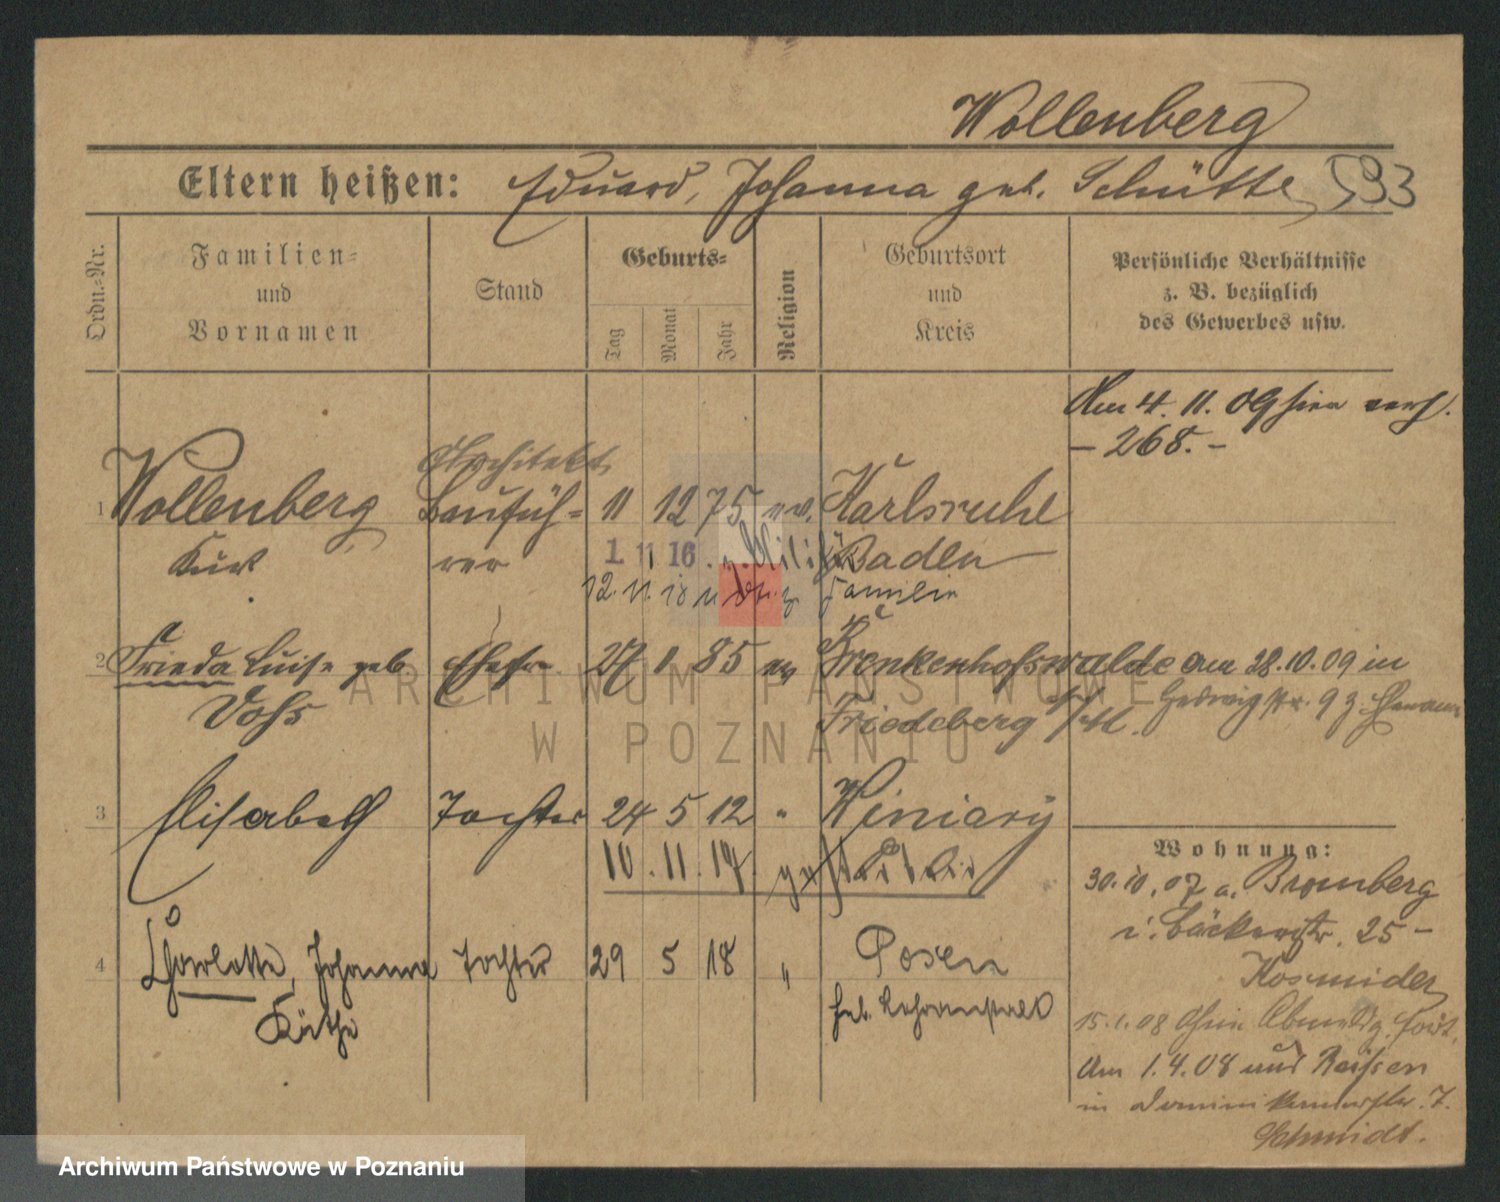 Wollenberg
Eltern heißen: Eduard, Johanna geb. Schütte 593
Ordn.-Nr.
Familien-
und
Vornamen
Stand
Geburts-
Tag
Monat
Jahr
Religion
Geburtsort
und
Kreis
Persönliche Verhältnisse
z. B. bezüglich
des Gewerbes usw.
Am 4. 11. 09 hier verh.
- 268. -
Architekt
1 Wollenberg Baufüh- 11 12 75 ev. Karlsruhe
Kurt rer 1 11 16 . z. Militär Baden
12. 11. 18 Familie
2 Frieda Luise geb. Ehefr. 27 1 85 ev Brenkenhofswalde am 28.10.09 in
Vohs Friedeberg Hedwigstr. 9
3 Elisabeth Tochter 24 5 12 " Winiary
10. 11. 14 gestorben
Wohnung:
30.10.07 a. Bromberg
i. Bäckerstr. 25 -
Kosmider
4 Charlotte, Johanna Tochter 29 5 18 " Posen
Käthe Heb. Lehranstalt
15.1.08 Ohne Abmeldg. fort.
Am 1.4.08 aus Reisen
in Dominikanerstr. 7.
Schmidt.
ARCHIWUM PAŃSTWOWE
W POZNANIU
Archiwum Państwowe w Poznaniu